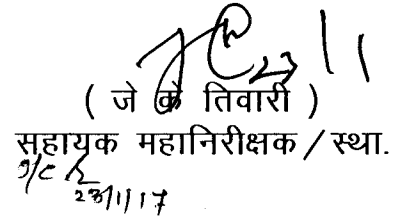 23/1
( जे के तिवारी )
सहायक महानिरीक्षक / स्था.
23/1/17